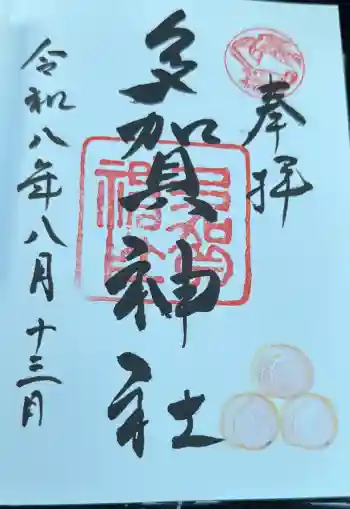 奉拝
多賀神社
令和八年八月十三日